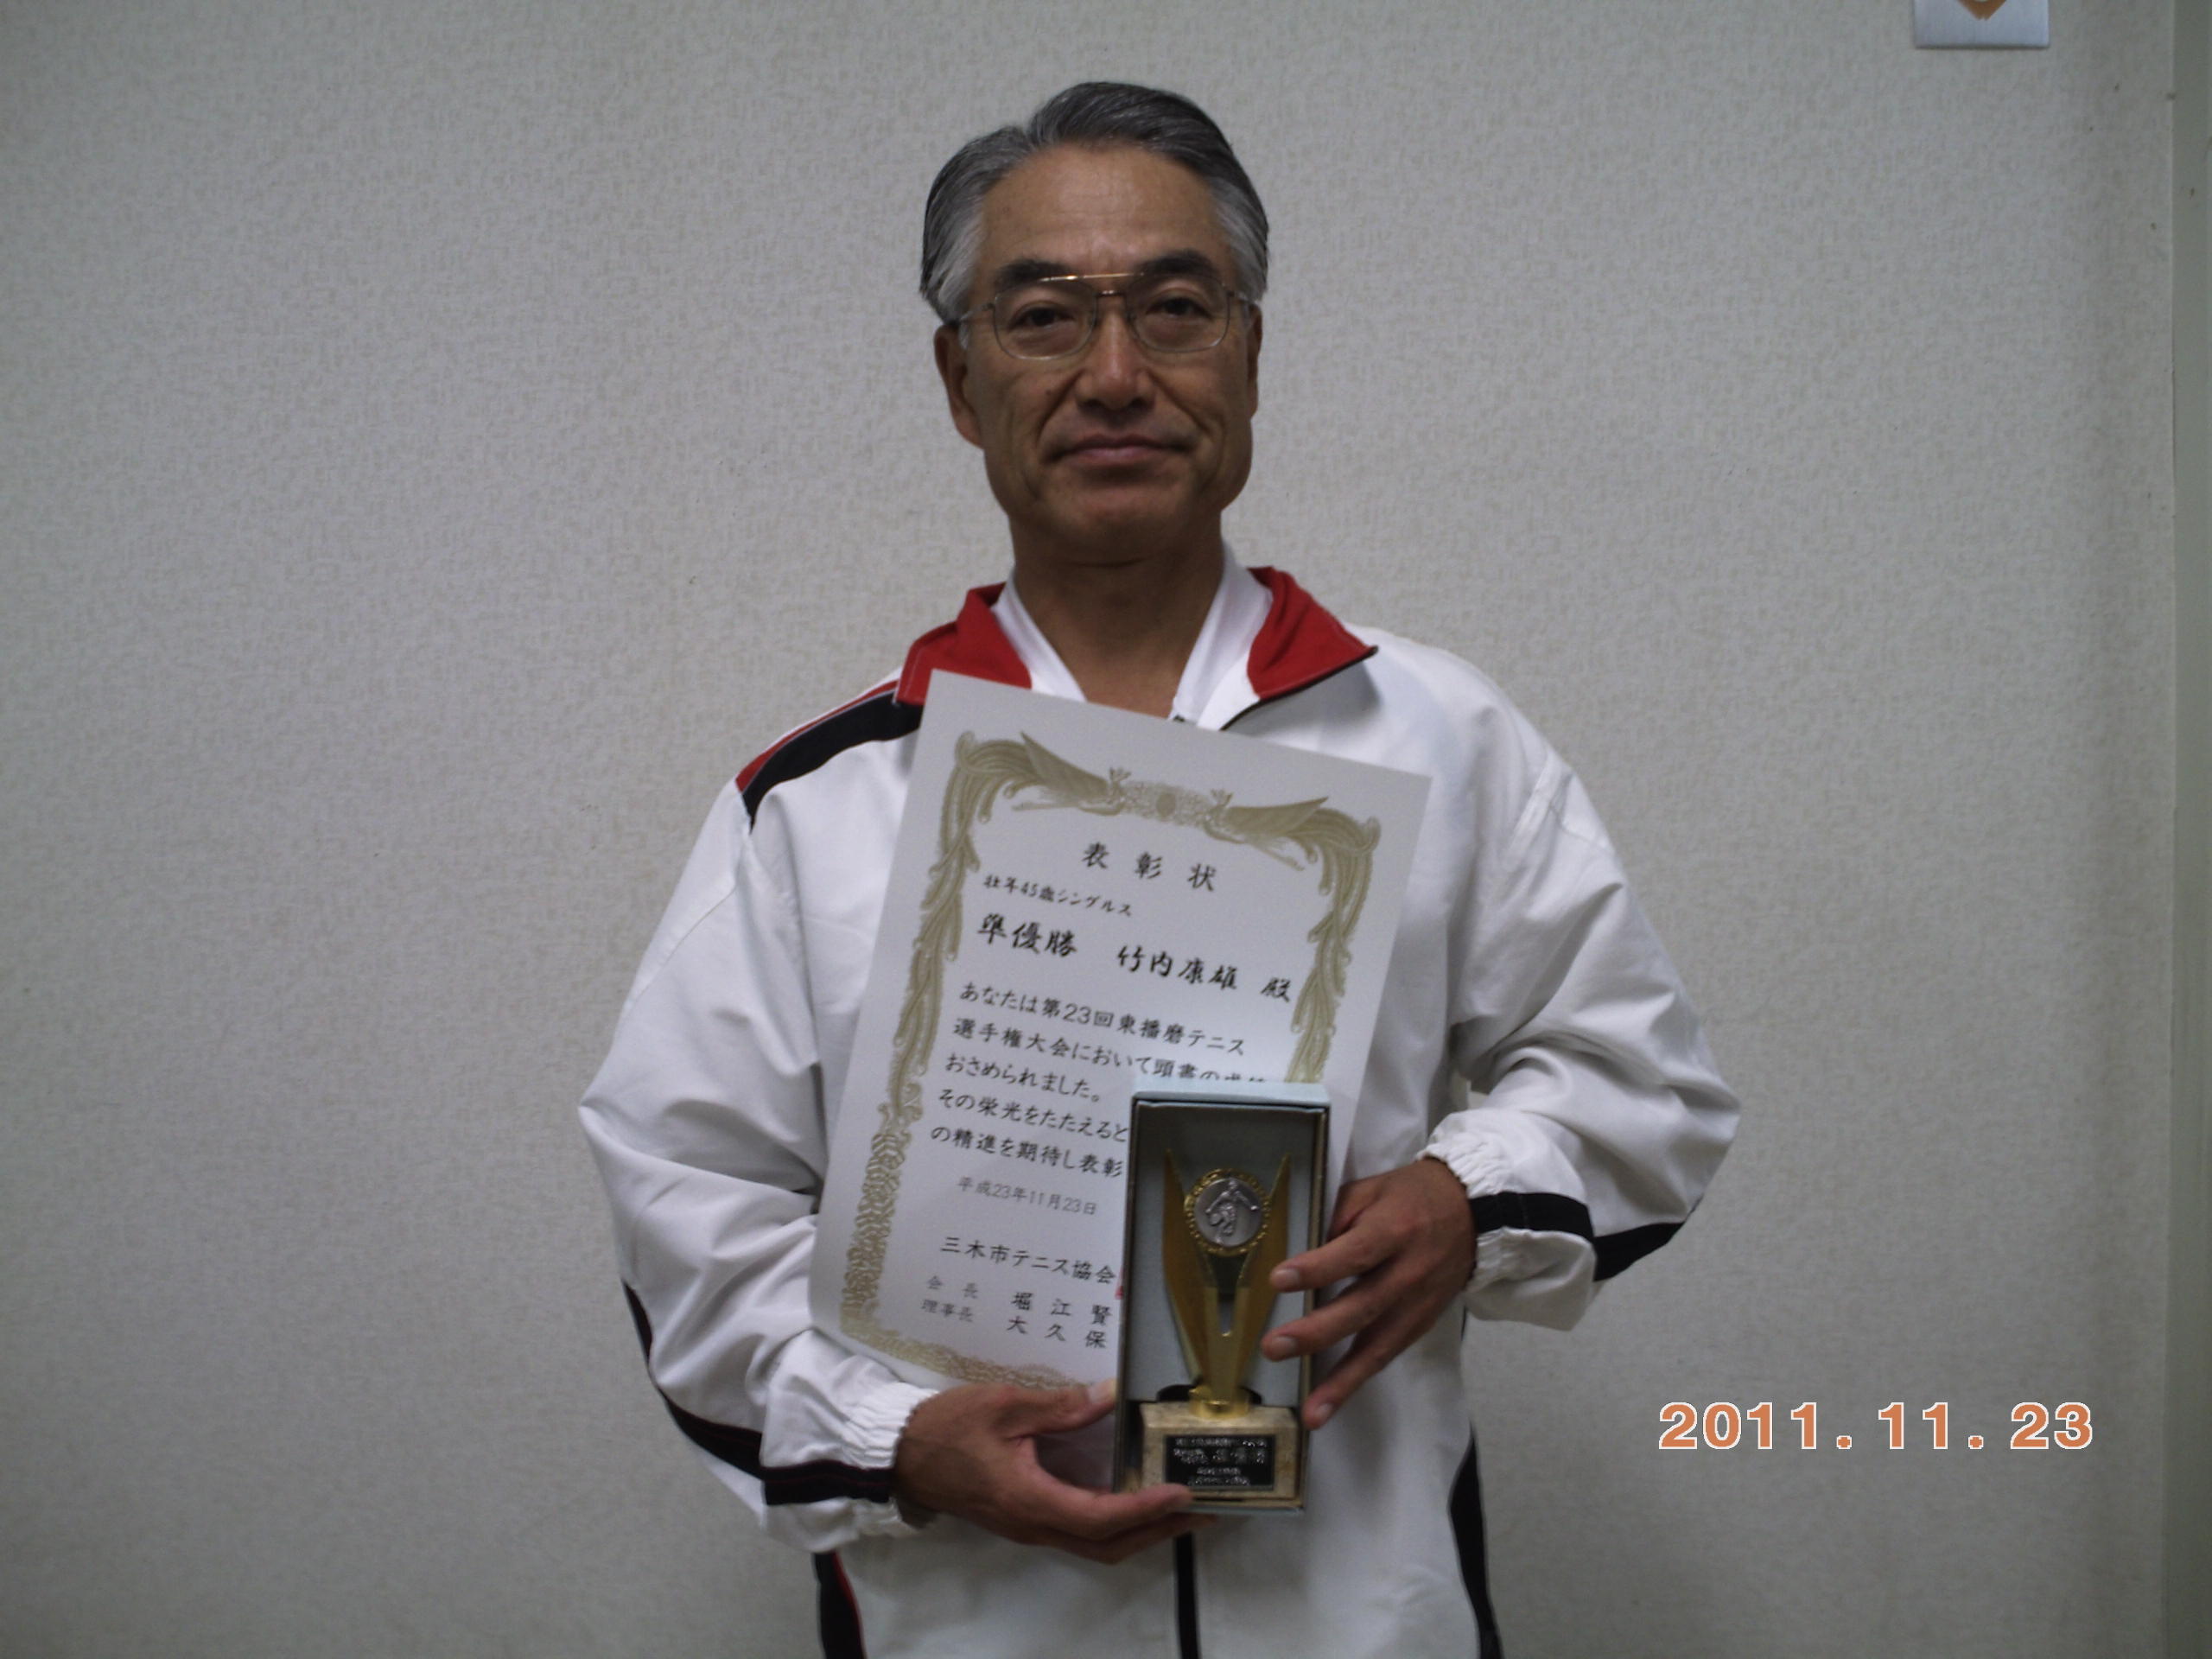 表彰状
壮年45歳シングルス
準優勝 竹内康雄 殿
あなたは第23回東播磨テニス
選手権大会において頭書の成績
おさめられました。
その栄光をたたえると
の精進を期待し表彰
平成23年11月23日
三木市テニス協会
会長 堀江賢
理事長 大久保
2011.11.23